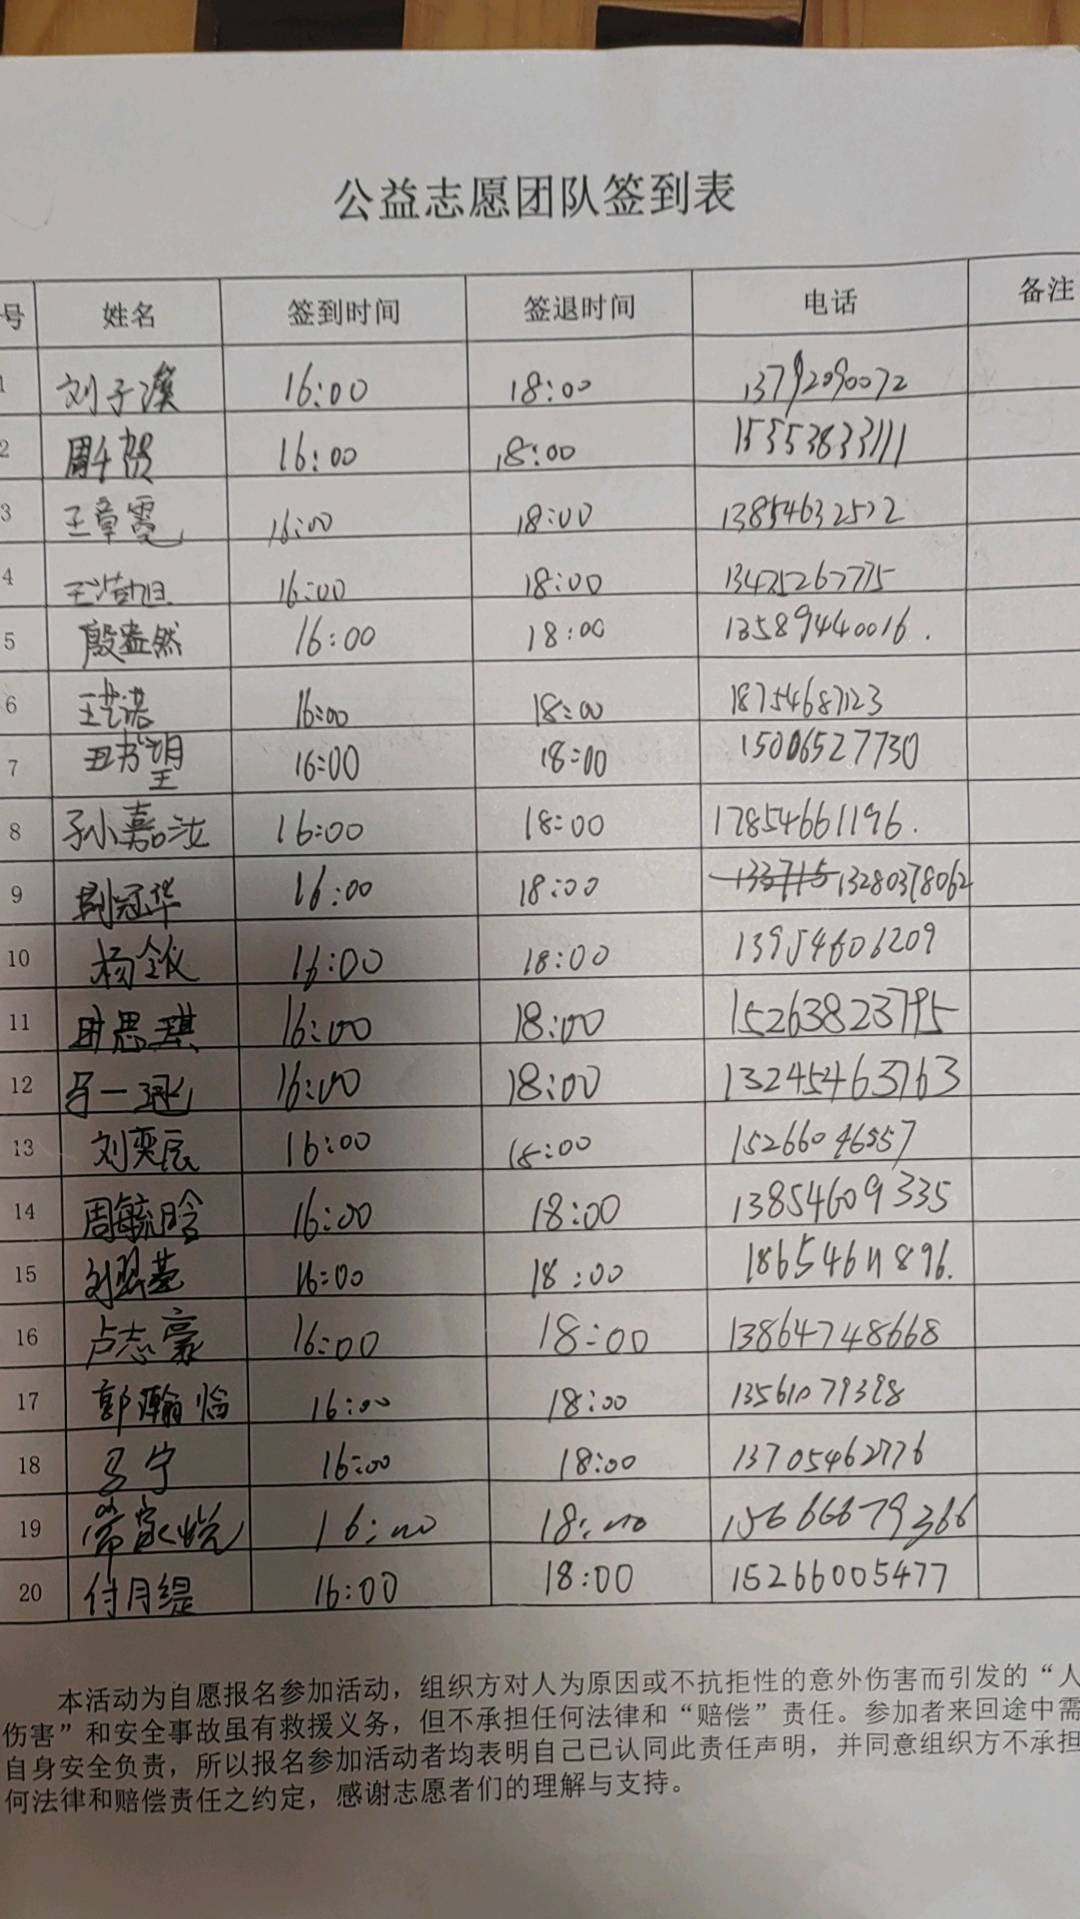 公益志愿团队签到表
号 姓名 签到时间 签退时间 电话 备注
1 刘子溪 16:00 18:00 13792090072
2 周午贺 16:00 18:00 15553833111
3 王章霓 16:00 18:00
4 16:00 18:00
5 殷蓋然 16:00 18:00 13589440016.
6 王艺诺 16:00 18:00 18754687123
7 16:00 18:00 15006527730
8 孙小嘉汝 16:00 18:00 17854661196.
9 冠华 16:00 18:00 13280378062
10 杨 16:00 18:00 13954606209
11 田思琪 16:00 18:00 15263823795
12 马一 16:00 18:00 13245463763
13 刘奕辰 16:00 18:00 15266046557
14 周毓晗 16:00 18:00 13854609335
15 刘 16:00 18:00 18654611896.
16 卢志豪 16:00 18:00 13864748668
17 郭瀚临 16:00 18:00 13561079398
18 马宁 16:00 18:00 13705462776
19 常家悦 16:00 18:00 15666679366
20 付月缇 16:00 18:00 15266005477
本活动为自愿报名参加活动，组织方对人为原因或不抗拒性的意外伤害而引发的“人
伤害”和安全事故虽有救援义务，但不承担任何法律和“赔偿”责任。参加者来回途中需
自身安全负责，所以报名参加活动者均表明自己已认同此责任声明，并同意组织方不承担
何法律和赔偿责任之约定，感谢志愿者们的理解与支持。